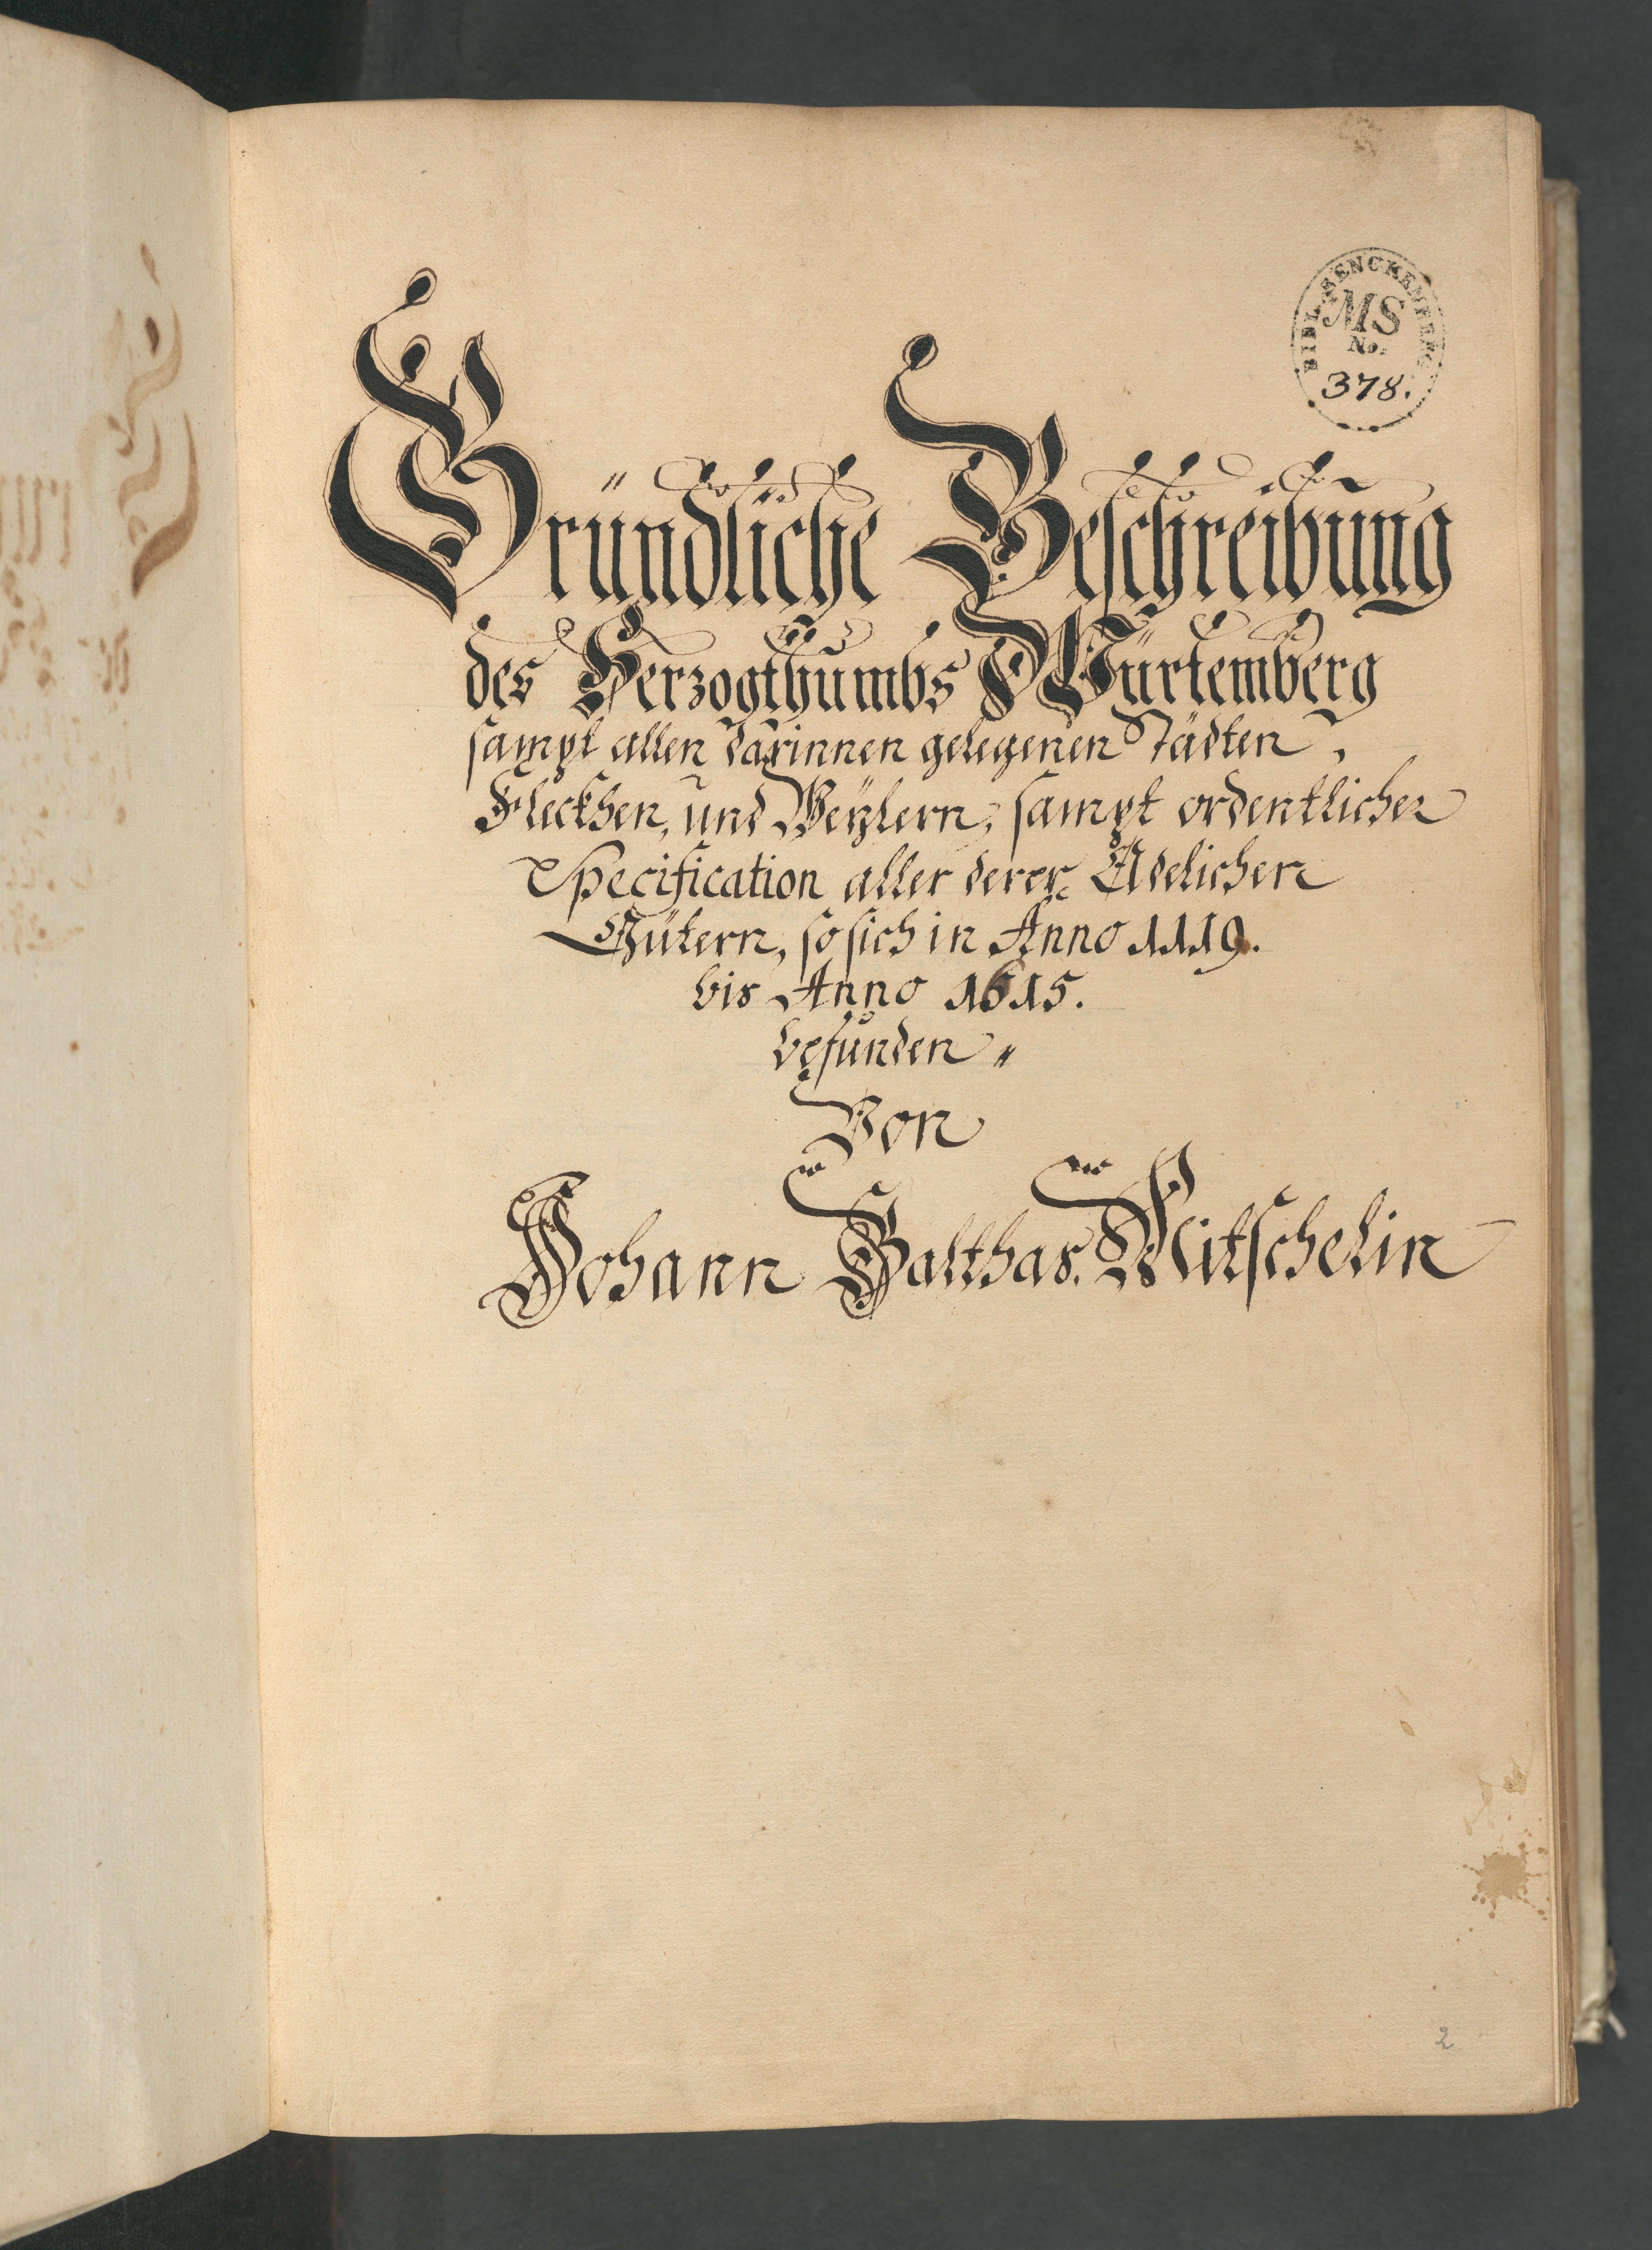 BIBL. SENCKENBERG.
MS
No.
378.
Gründliche Beschreibung
des Herzogthumbs Würtemberg
sampt allen darinnen gelegenen Städten,
Fleckhen, und Weylern, sampt ordentlicher
Specification aller derer Adelichen
Gütern, so sich in Anno 1119.
bis Anno 1615.
befunden "
Von
Johann Balthas. Mitschelin
2